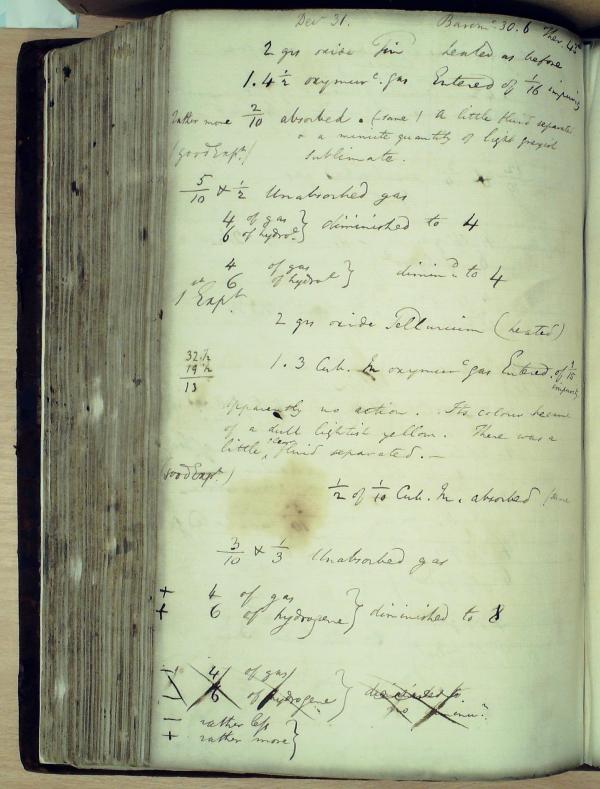 Decr 31. Baromr 30.6 Ther. 45
2 grs oxide Tin heated as before
1.4 1/2 oxymurc. gas Entered of 1/16 impurity
Rather more 2/10 absorbed. (same) A little fluid separated
& a minute quantity of light greyish
(good Expt.) sublimate.
5/10 & 1/2 Unabsorbed gas
4 of gas
6 of hydrol } diminished to 4
4 of gas
6 of hydrol } dimind to 4
1st Expt.
2 grs oxide Tellurium (heated)
1.3 Cub. In oxymurc gas Entered of 1/15 impurity
32 1/2
19 1/2
13
Apparently no action. Its colour became
of a dull lightish yellow. There was a
little clear fluid separated. —
(good Expt.)
1/2 of 1/10 Cub. In. absorbed (same
3/10 & 1/3 Unabsorbed gas
+ 4 of gas
+ 6 of hydrogene } diminished to 8
4 of gas
6 of hydrogene }
+ rather less
+ rather more }